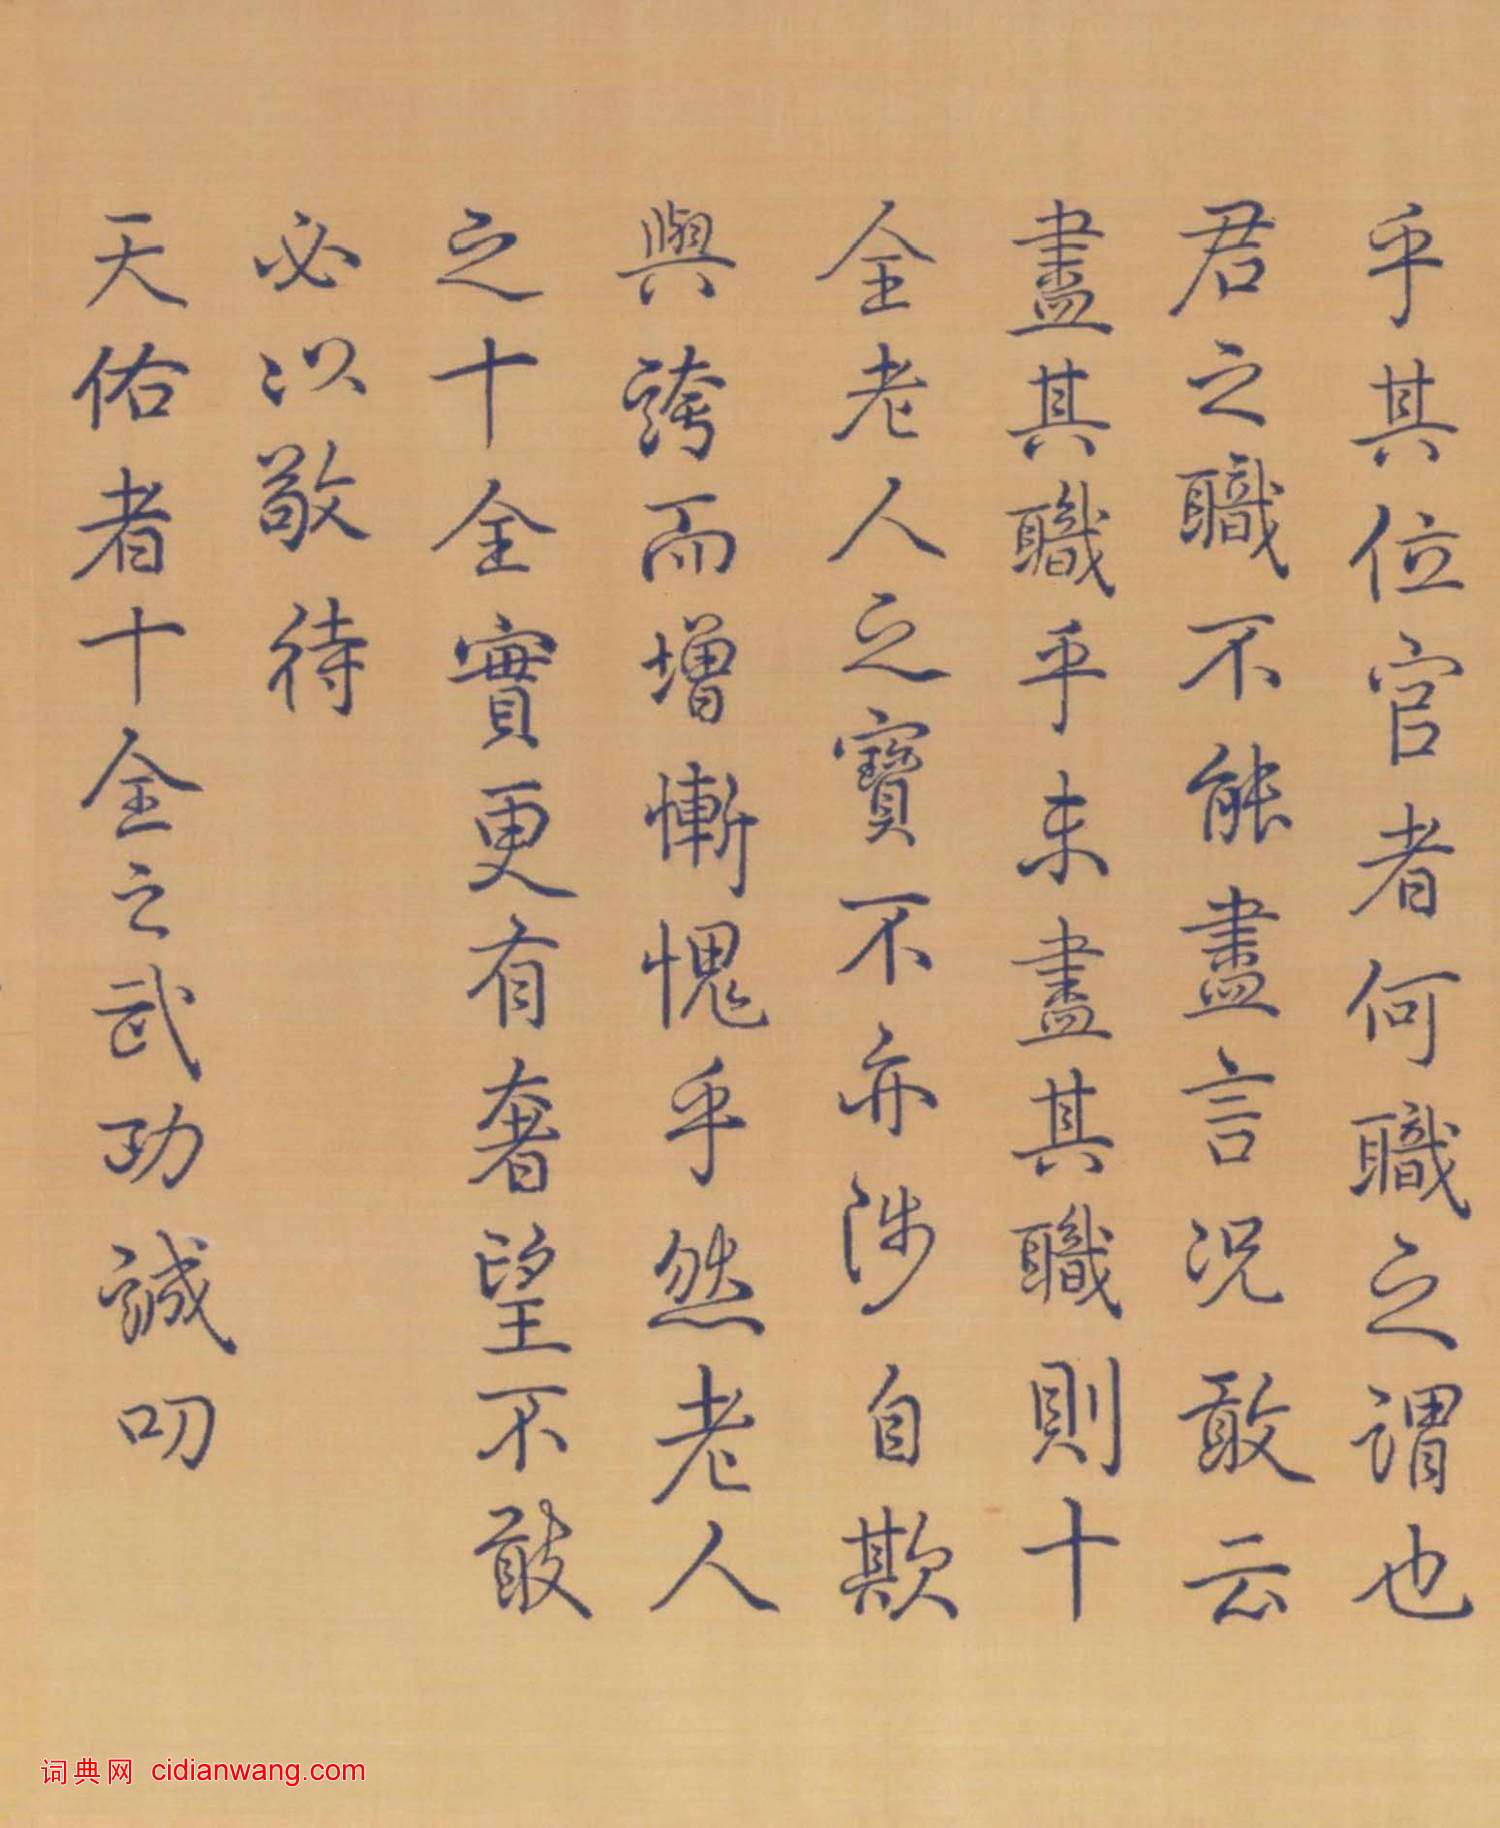 乎其位官者何職之謂也
君之職不能盡言況敢云
盡其職乎未盡其職則十
全老人之寶不亦涉自欺
與誇而增慚愧乎然老人
之十全實更有奢望不敢
必以敬待
天佑者十全之武功誠叨
词典网 cidianwang.com